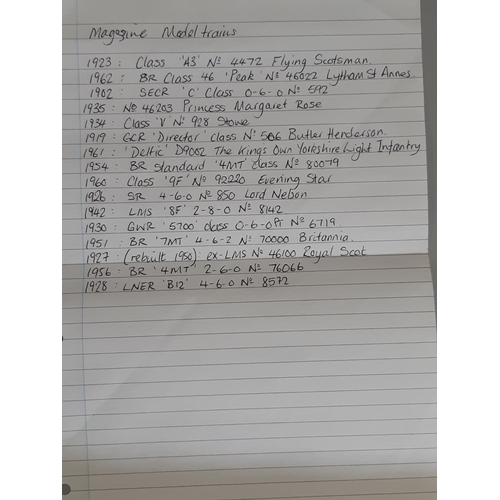 Magazine Model trains
1923 : Class 'A3' Nº 4472 Flying Scotsman.
1962 : BR Class 46 'Peak' Nº 46022 Lytham St Annes
1902 : SECR 'C' Class 0-6-0 Nº 592
1935 : Nº 46203 Princess Margaret Rose
1934 : Class 'V' Nº 928 Stowe
1919 : GCR 'Director' class Nº 506 Butler Henderson.
1961 : 'Deltic' D9002 The Kings Own Yorkshire Light Infantry
1954 : BR standard '4MT' class Nº 80079
1960 : Class '9F' Nº 92220 Evening Star
1926 : SR 4-6-0 Nº 850 Lord Nelson
1942 : LMS '8F' 2-8-0 Nº 8142
1930 : GWR '5700' class 0-6-0PT Nº 6719
1951 : BR '7MT' 4-6-2 Nº 70000 Britannia.
1927 : (rebuilt 1950) : ex-LMS Nº 46100 Royal Scot
1956 : BR '4MT' 2-6-0 Nº 76066
1928 : LNER 'B12' 4-6-0 Nº 8572